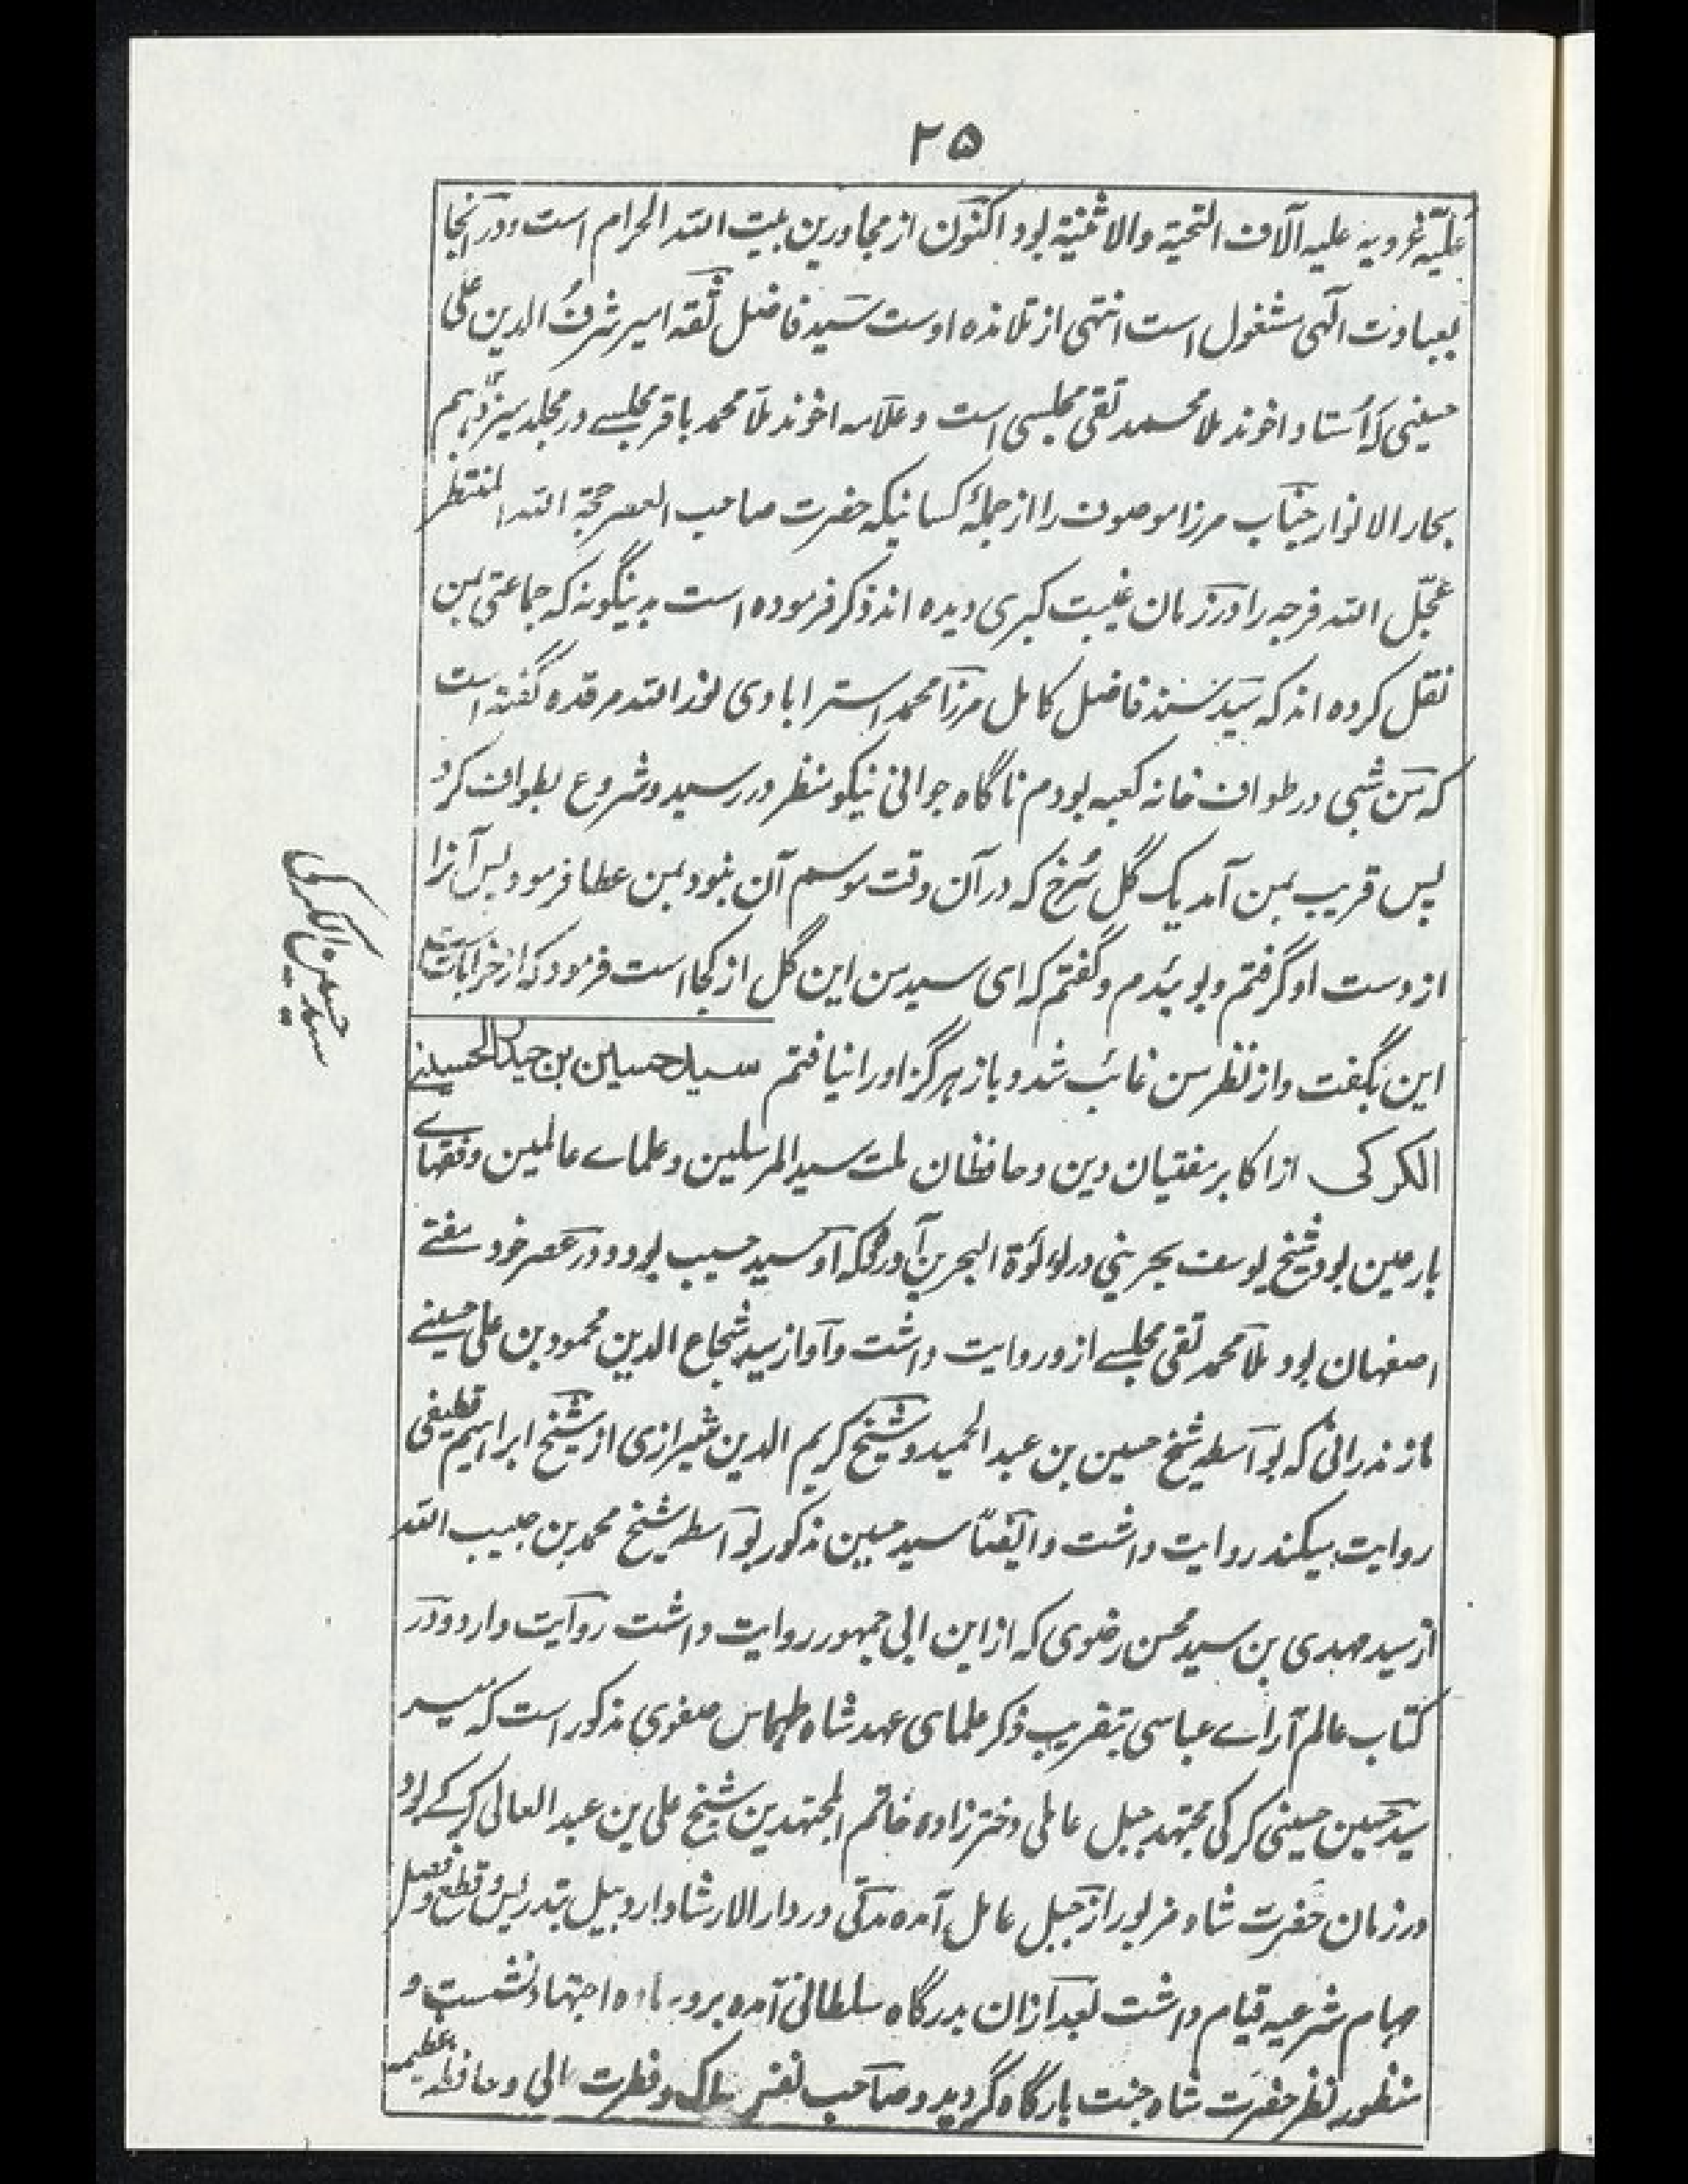 ۲۵
علیّه غرویه علیه آلاف التحیة والاثنیة بود اکنون از مجاورین بیت الله الحرام است و در آنجا
بعبادت الهی مشغول است انتهی از تلامذه اوست سید فاضل ثقه امیر شرف الدین علی
حسینی که اُستاد اخوند ملا محمد تقی مجلسی است و علّامه اخوند ملّا محمد باقر مجلسے در مجلد سیزدهم
بحار الانوار جناب مرزا موصوف را از جملۀ کسانیکه حضرت صاحب العصر حجة الله المنتظر
عجّل الله فرجه را در زمان غیبت کبری دیده اند ذکر فرموده است بدینگونه که جماعتی بمن
نقل کرده اند که سید سند فاضل کامل مرزا محمد استرابادی نور الله مرقده گفته است
که من شبی در طواف خانه کعبه بودم ناگاه جوانی نیکو منظر در رسید و شروع بطواف کرد
پس قریب بمن آمد یک گل سُرخ که در آن وقت موسم آن نبود بمن عطا فرمود پس آنرا
از دست او گرفتم و بوئیدم و گفتم که ای سید من این گل از کجا است فرمود که از خرابات است
این بگفت و از نظر من غائب شد و باز هرگز او را نیافتم سید حسین بن حیدر الحسینے
الکرکی از اکابر مفتیان دین و حافظان ملت سید المرسلین و علماے عالمین و فقهاے
بارعین بود شیخ یوسف بحرینی در لولوة البحرین آورده که او سید حسیب بود و در عصر خود مفتے
اصفهان بود ملّا محمد تقی مجلسے از و روایت داشت و او از سید شجاع الدین محمود بن علی حسینے
مازندرانی که بواسطه شیخ حسین بن عبد الحمید و شیخ کریم الدین شیرازی از شیخ ابراهیم قطیفی
روایت میکند روایت داشت و ایضاً سید حسین مذکور بواسطه شیخ محمد بن حبیب الله
از سید مهدی بن سید محسن رضوی که از ابن ابی جمهور روایت داشت روایت دارد و در
کتاب عالم آراے عباسی بتقریب ذکر علمای عهد شاه طهماس صفوی مذکور است که میر
سید حسین حسینی کرکی مجتهد جبل عاملی دختر زاده خاتم المجتهدین شیخ علی بن عبد العالی کرکے بود
در زمان حضرت شاه مزبور از جبل عامل آمده مدتی در دار الارشاد اردبیل بتدریس و قطع و فصل
مهام شرعیه قیام داشت بعد از ان بدرگاه سلطانی آمده اجتهاد نشست و
منظور نظر حضرت شاه جنت بارگاه گردید و صاحب نفس و فطرت عالی و حافظه عظیمه
سید حسین الکرکی